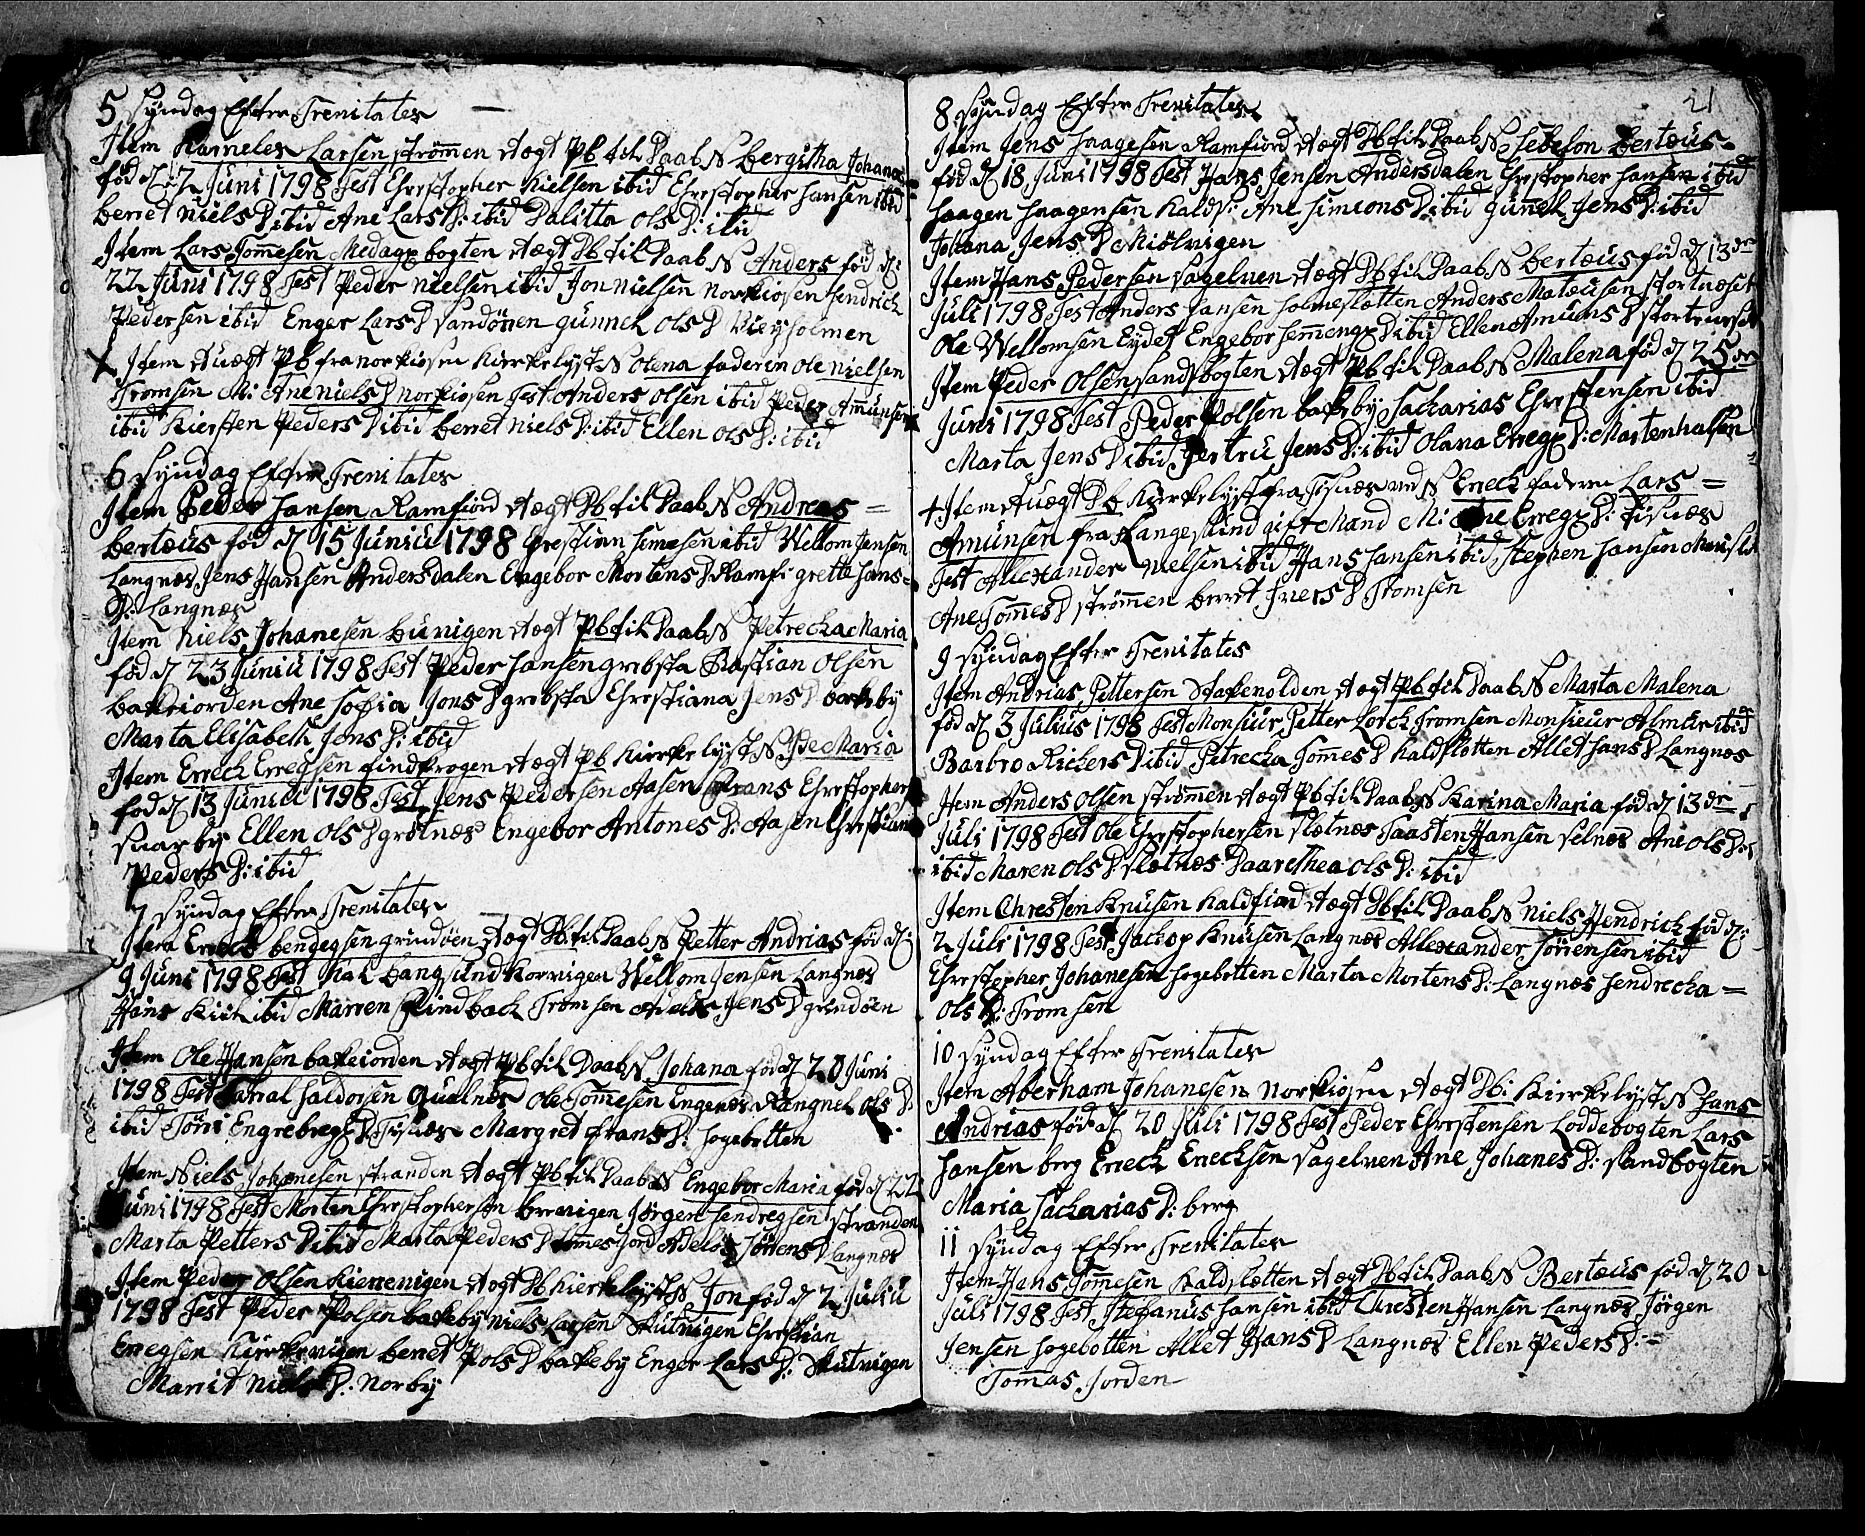 5 Syndag Efter Trenitates
Item Karneles Larsen strømmen Ægt Pb til Daab N Bergitha Johana
fød d 12 Juni 1798 Test Chrestopher Nielsen ibid Chrestopher Hansen ibid
berret Niels D ibid Ane Lars D: ibid Dalitta Ols D: ibid
Item Lars Tommesen Medagsbogten Ægt Pb til Daab N Anders fød d:
22 Juni 1798 Test Peder Nielsen ibid Jon Nielsen Norkiosen Hendrich
Pedersen ibid Enger Lars D Sandøren gunnel Ols D Viegholmen
X Item Uægt Pb fra norkiosen Kierkelyst N Olena faderen Ole Nielsen
Tromsen M: Ane Niels D norkiosen Test Anders Olsen ibid Peder Amunsen
ibid Kiersten Peders D ibid berret Niels D: ibid Ellen Ols D: ibid
6 Syndag Efter Trenitates
Item Peder Hansen Ramfiord Ægt Pb til Daab N Andreas =
berteus fød d 15 Juniu 1798 Chrestian Simesen ibid Wellom Jensen
Langnæs Jens Hansen Andersdalen Engebor Mortens D Ramfi grette Hans=
D: Langnæs
Item Niels Johanesen bunigen Ægt Pb til Daab N Petrecka Maria
fød d 23 Juniu 1798 Test Peder Hansen grebsta Bastian Olsen
bakeiorden Ane Sofia Jons D grebsta Chrestiana Jens D bakeby
Marta Elisabeth Jens D: ibid
Item Erreck Erregsen findkrogen Ægt Pb Kierkelyst N Maria
fød d 13 Juniu 1798 Test Jens Pedersen Aasen Frans Chrestopher
suarby Ellen Ols D grøtnæs Engebor Antones D: Aasen Chrestiana
Peders D: ibid
7 Syndag Efter Trenitates
Item Erreck bendegsen grindøen Ægt Pb til Daab N Petter Andrias fød d:
9 Juni 1798 Test Kal bangsund Korvigen Wellom Jensen Langnæs
Hans Kiil ibid Marren Lindback Tromsen Jens D grindøen
Item Ole Hansen bakeiorden Ægt Pb til Daab N Johana fød d 20 Juni
1798 Test Haldorsen Qualnes Ole Tommesen Engenæs Rangnel Ols D:
ibid Töri Engrebregs D Tisnæs Margret frans D: hogebotten
Item Niels Johanesen stranden Ægt Pb til Daab N Engebor Maria fød d 22
Juni 1798 Test Morten Chrestophersen brevigen Jörgen Hendregsen stranden
Marta Petters D ibid Marta Peders D Tomesjord Adelos Jörrens D Langnæs
Item Peder Olsen Kierrevigen Ægt Pb Kierkelyst N Jon fød d 2 Juliu
1798 Test Peder Polsen bakeby Niels Larsen Skutvigen Chrestian
Erregsen Kierkevigen berret Pols D bakeby Enger Lars D: Skutvigen
Marrit Niels D: Norby
21
8 Syndag Efter Trenitates
Item Jens Haagesen Ramfiord Ægt Pb til Daab N Sebelon berteus
fød d 18 Juni 1798 Test Hans Jensen Andersdalen Chrestopher Hansen ibid
Haagen Haagensen Kalds: Ane Simeons D: ibid gunnel Jens D: ibid
Johana Jens D Miölvigen
Item Hans Pedersen Sagelven Ægt Pb til Daab N berteus fød d 13de
Juli 1798 Test Anders Hansen holmesletten Anders Mateusen stortneset
Ole Wellomsen Eydet Engebor hemmengs D: ibid Ellen Amuns D
Item Peder Olsen Sandsbogten Ægt Pb til Daab N Malena fød d 25de
Juni 1798 Test Peder Polsen bakeby Sackarias Chrestensen ibid
Marta Jens D ibid Jertru Jens D: ibid Olana Erregs D: Martenhalsen
+ Item Uægt Pb Kierkelyst fra Tisnæs N Erreck faderen Lars =
Amunsen fra Langesund gift Mand M: Ane Erregs D: Tisnæs
Test Allexander Nielsen ibid Hans Hansen ibid Stephen Hansen
Ane Tommes D strømmen berret Ivers D Tromsen
9 Syndag Efter Trenitates
Item Andrias Pettersen Stakenolden Ægt Pb til Daab N Marta Malena
fød d 3 Julius 1798 Test Monsiur Petter Lorck Tromsen Monsieur Almur ibid
Barbro Rickers D ibid Petrecka Tommes D kaldslotten Allet Hans D Langnæs
Item Anders Olsen strømmen Ægt Pb til Daab N Karina Maria fød d 13de
Juli 1798 Test Ole Chrestophersen sletnæs Taasten Hansen selnæs Ane Ols D:
ibid Maren Ols D sletnæs Daarethea Ols D: ibid
Item Chresten Knusen Kaldfiord Ægt Pb til Daab N Niels Hendrick fød d:
2 Juli 1798 Test Jackop Knusen Langnæs Allexander Törrensen ibid
Chrestopher Johanesen hogebotten Marta Mortens D: Langnæs Hendrecka =
Ols D: Tromsen
10 Syndag Efter Trenitates
Item Aberham Johanesen Norkiosen Ægt Pb: Kierkelyst N Hans
Andrias fød d 20 Juli 1798 Test Peder Chrestensen Loddebogten Lars
Hansen berg Erreck Errecksen Sagelven Ane Johanes D: sandbogten
Maria Sackarias D: berg
11 Syndag Efter Trenitates
Item Hans Tommesen Kaldsletten Ægt Pb til Daab N Berteus fød d 20
Juli 1798 Test Stefanus Hansen ibid Chresten Hansen Langnæs Jörgen
Jensen hogebotten Allet Hans D Langnæs Ellen Peders D: =
Tommas Jorden